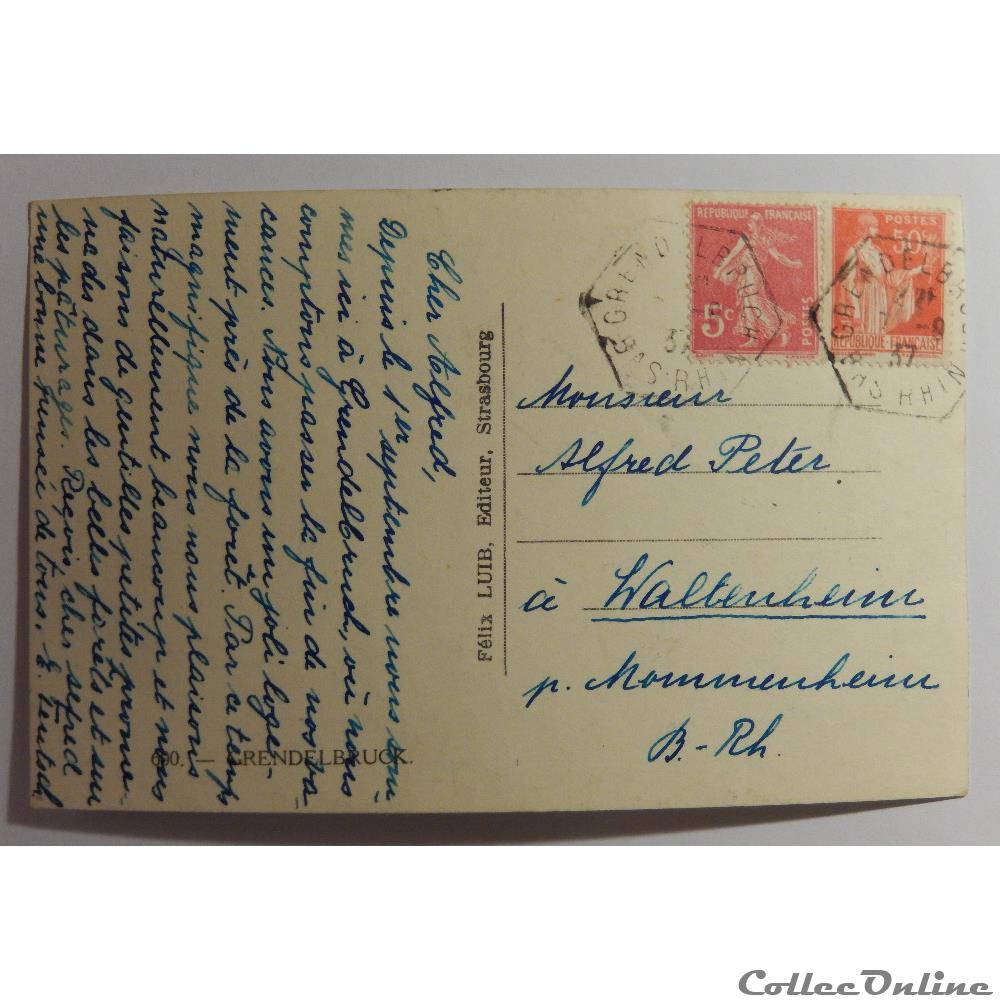 Cher Alfred,
Depuis le 1er septembre nous som-
mes ici à Grendelbruch, où nous
comptons passer la fin de nos va-
cances. Nous avons un joli loge-
ment près de la forêt. Par ce temps
magnifique nous nous plaisons
naturellement beaucoup et nous
faisons de gentilles petites prome-
nades dans les belles forêts et sur
les pâturages. Reçois, cher, 
une bonne de tous. E.
600. — GRENDELBRUCK.
Félix LUIB, Editeur, Strasbourg
REPUBLIQUE FRANÇAISE
5c
POSTES
POSTES
50c
REPUBLIQUE FRANÇAISE
GRENDELBRUCH
37
BAS-RHIN
GRENDELBRUCH
37
BAS RHIN
Monsieur
Alfred Peter
à Waltenheim
p. Mommenheim
B.-Rh.
CollecOnline